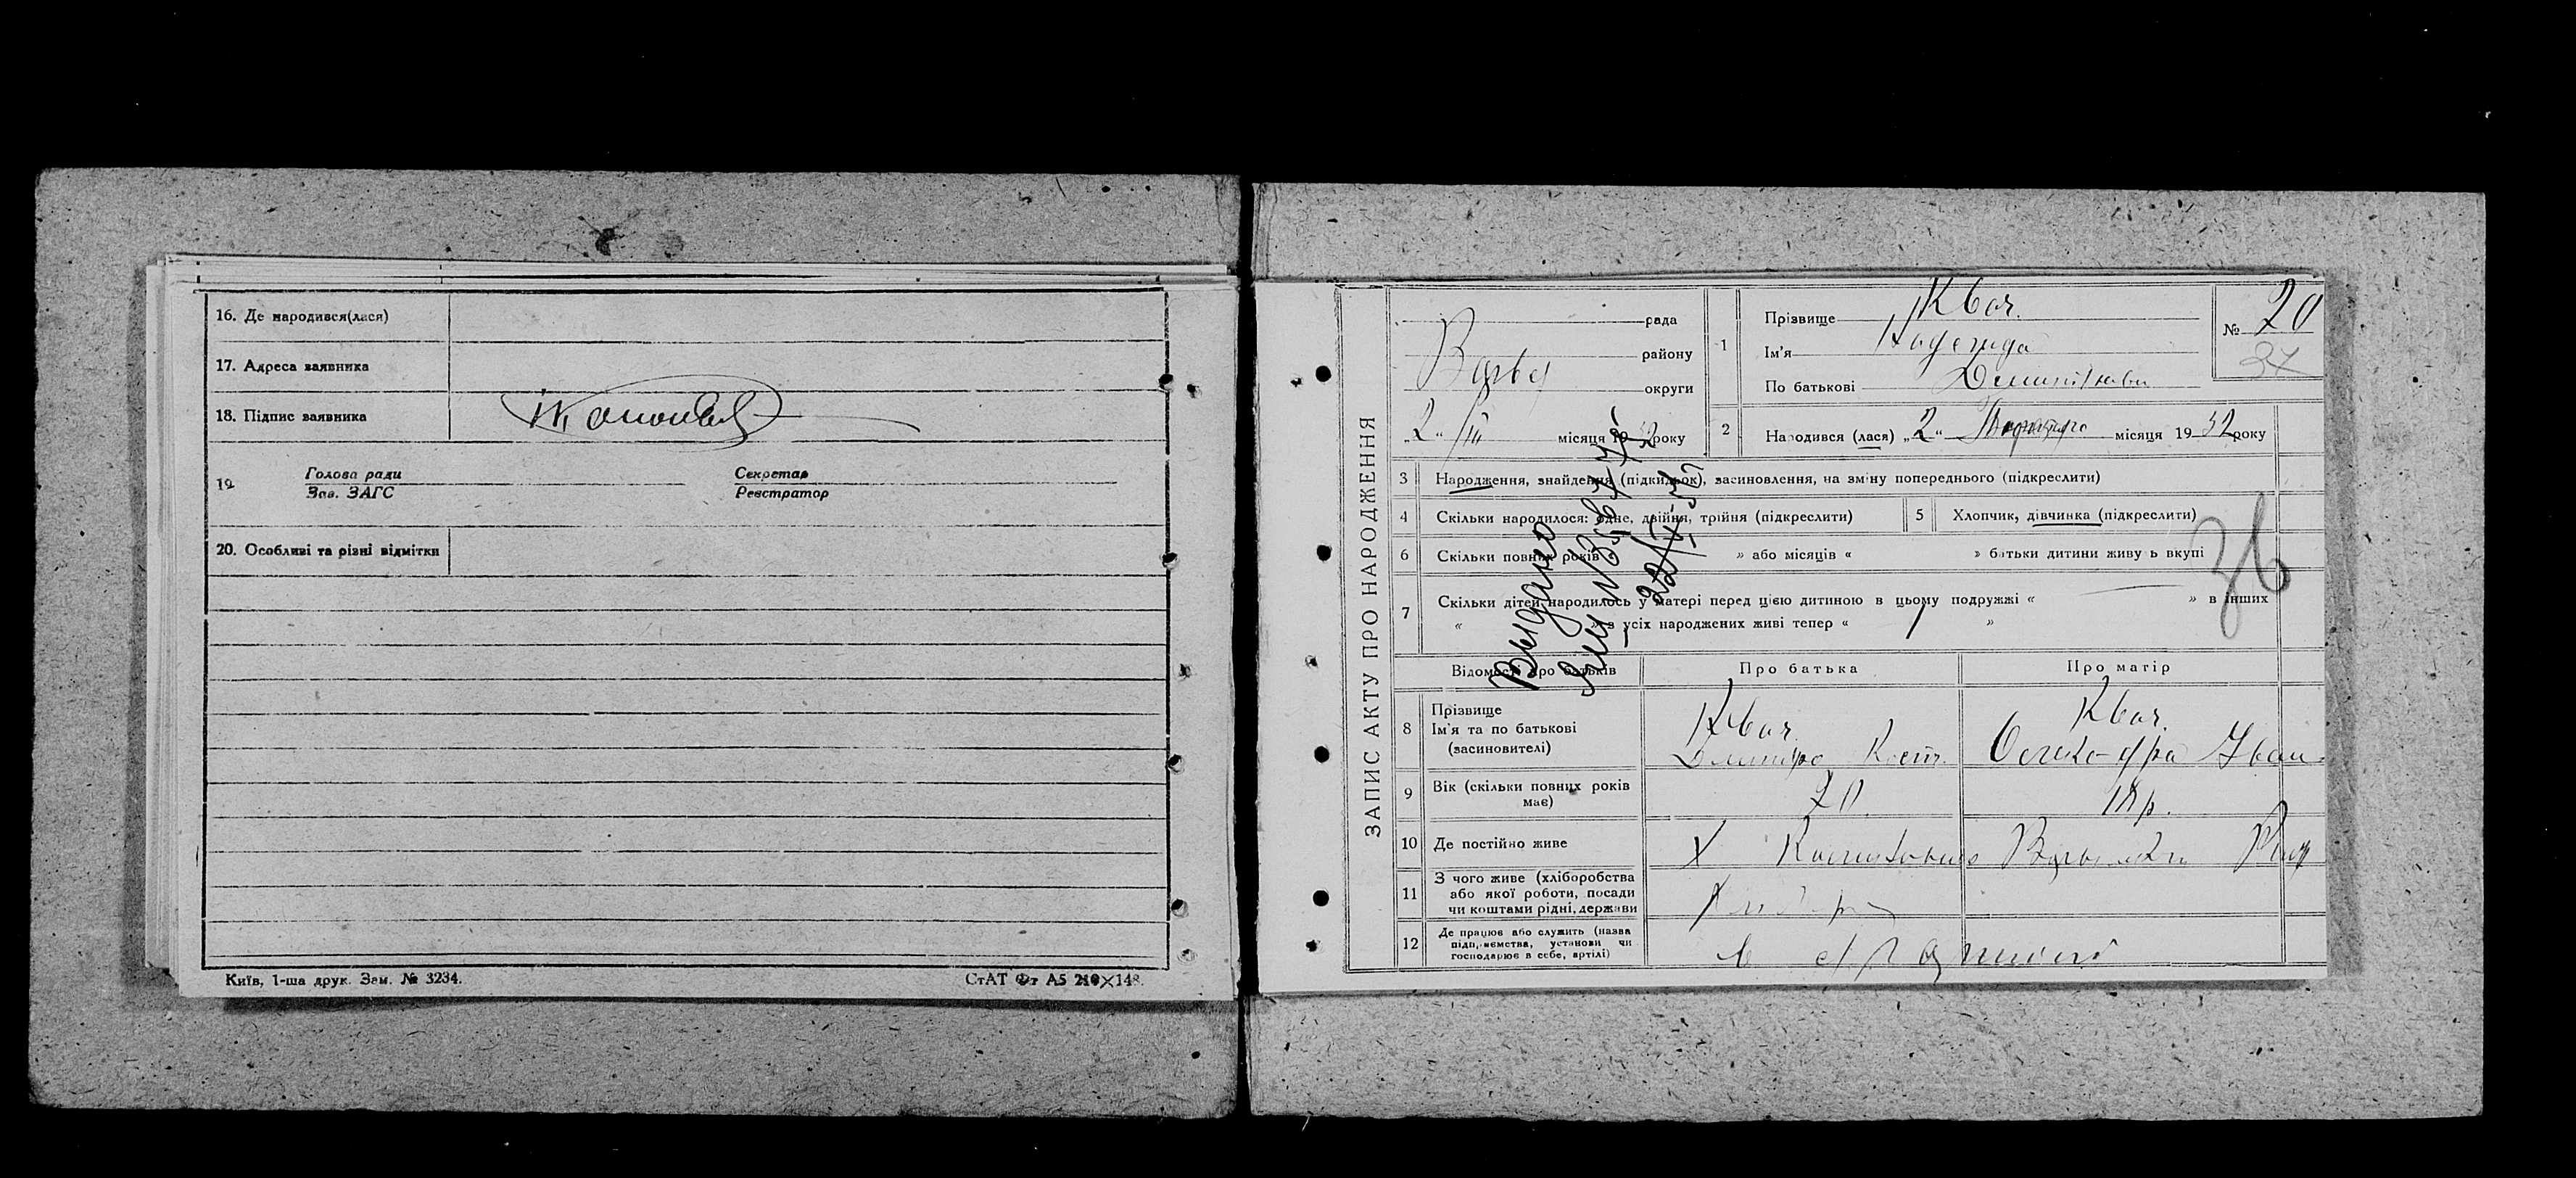 16. Де народився(лася)
17. Адреса заявника
18. Підпис заявника
19 Голова ради Секретар
Зав. ЗАГС Реєстратор
20. Особливі та різні відмітки
Київ, 1-ша друк. Зам. № 3234. СтАТ Фт А5 210×148.
ЗАПИС АКТУ ПРО НАРОДЖЕННЯ
рада
Варва району
округи
„2“ /III місяця 1932 року
1 Прізвище Квач.
Ім'я Надежда
По батькові
№ 20
37
2 Народився (лася) „2“ місяця 1932 року
3 Народження, знайдення (підкидьок), засиновлення, на зміну попереднього (підкреслити)
4 Скільки народилося: одне, двійня, трійня (підкреслити)
5 Хлопчик, дівчинка (підкреслити)
6 Скільки повних років » або місяців « » батьки дитини живуть вкупі
36
7 Скільки дітей народилось у матері перед цією дитиною в цьому подружжі « » в інших
« » з усіх народжених живі тепер « 1 »
Выдано
22/IX
Відомості про батьків Про батька Про матір
8 Прізвище
Ім'я та по батькові
(засиновителі)
Квач.
Дмитро Кост.
Квач.
Іван
9 Вік (скільки повних років
має)
20. 18 р.
10 Де постійно живе
Х
11 З чого живе (хліборобства
або якої роботи, посади
чи коштами рідні, держави
12 Де працює або служить (назва
підприємства, установи чи
господарює в себе, артілі)